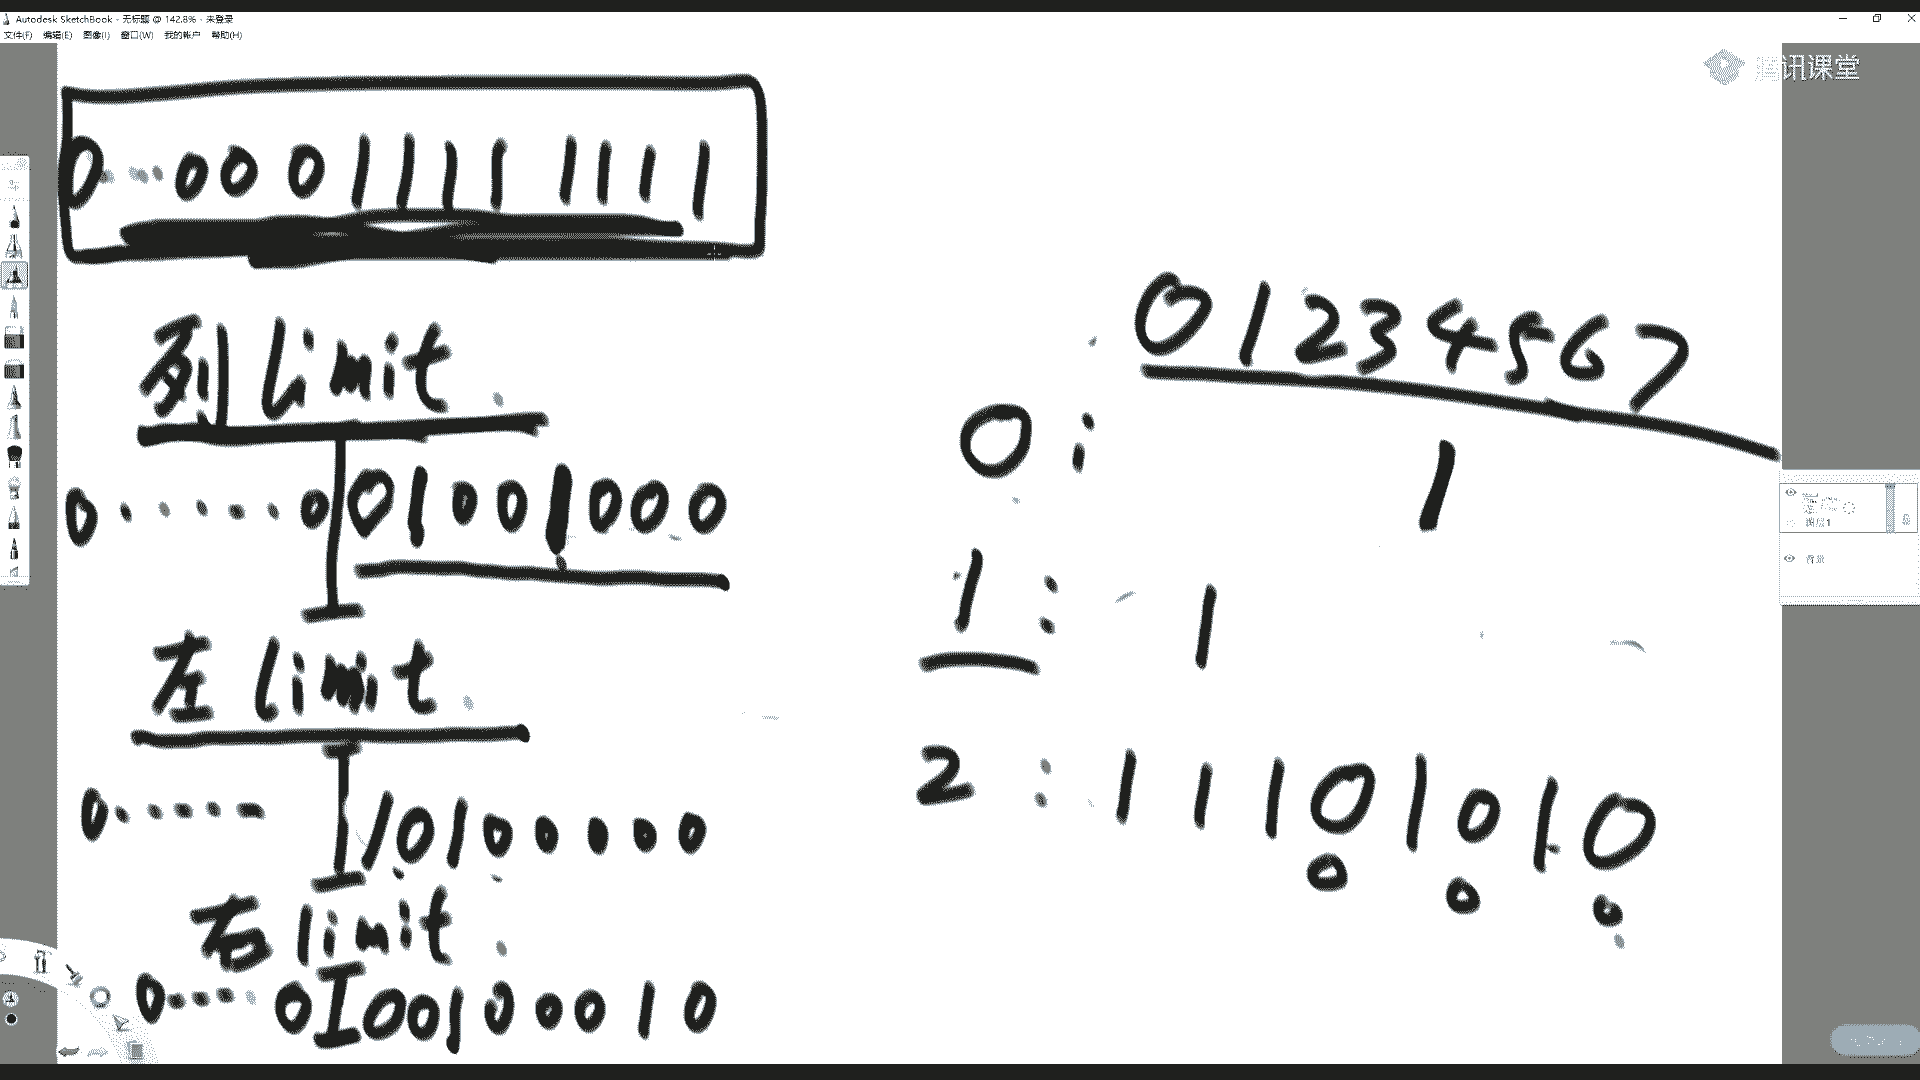 Autodesk SketchBook - 无标题 @ 142.8% - 未登录
文件(F) 编辑(E) 图像(I) 窗口(W) 我的帐户 帮助(H)
腾讯课堂
0 0 0 0 1 1 1 1 1 1 1 1
列 limit
0 0 0 1 0 0 1 0 0 0
左 limit
0 1 0 1 0 0 0 0 0
右 limit
0 0 0 0 1 0 0 0 1 0
0 1 2 3 4 5 6 7
0 : 1
1 : 1
2 : 1 1 1 0 1 0 1 0
图层1
背景